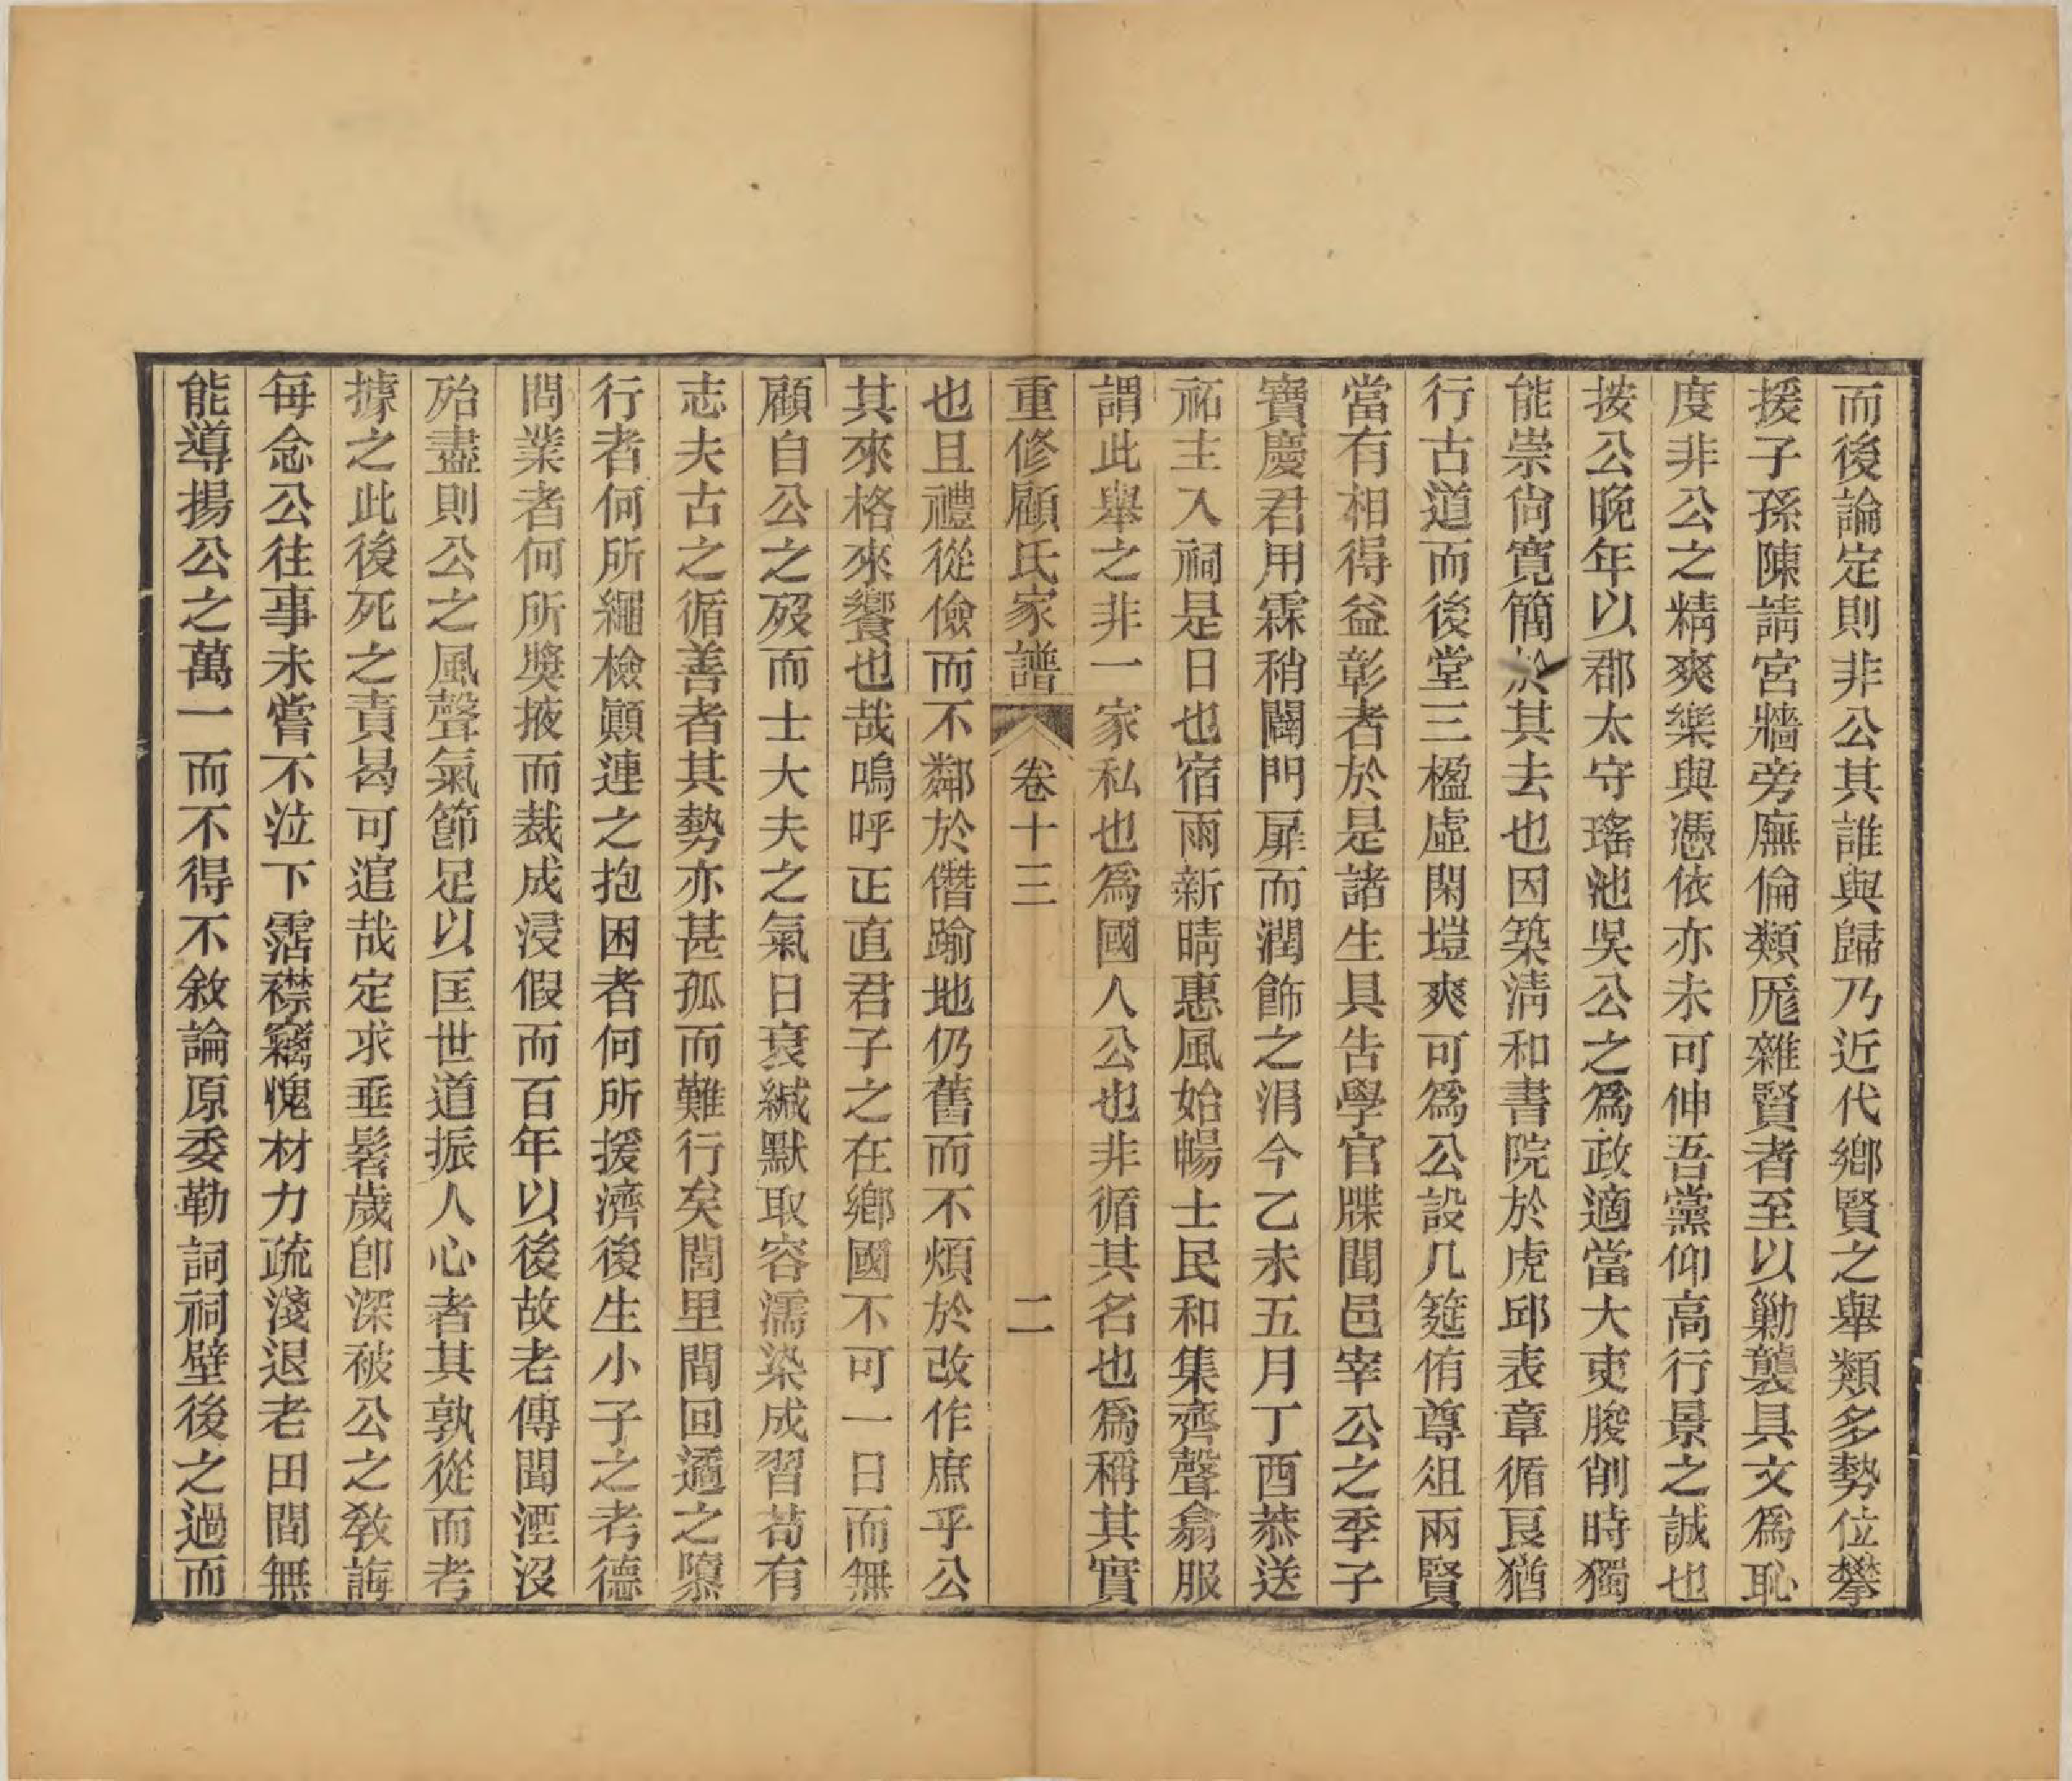 而後論定則非公其誰與歸乃近代鄉賢之舉類多勢位攀
援子孫陳請宮牆旁廡倫類厖雜賢者至以勦襲具文爲恥
度非公之精爽樂與憑依亦未可伸吾黨仰高行景之誠也
按公晚年以郡太守瑤池吳公之爲政適當大吏朘削時獨
能崇尙寛簡於其去也因築淸和書院於虎邱表章循良猶
行古道而後堂三楹虛閑塏爽可爲公設几筵侑尊俎兩賢
當有相得益彰者於是諸生具吿學官牒聞邑宰公之季子
寶慶君用霖稍闢門扉而潤飾之涓今乙未五月丁酉恭送
祏主入祠是日也宿雨新晴惠風始暢士民和集齊聲翕服
謂此舉之非一家私也爲國人公也非循其名也爲稱其實
重修顧氏家譜 卷十三 二
也且禮從儉而不鄰於僭踰地仍舊而不煩於改作庶乎公
其來格來饗也哉嗚呼正直君子之在鄉國不可一日而無
顧自公之歿而士大夫之氣日衰緘默取容濡染成習苟有
志夫古之循善者其勢亦甚孤而難行矣閭里間回遹之隳
行者何所繩檢顚連之抱困者何所援濟後生小子之考德
問業者何所獎掖而裁成浸假而百年以後故老傳聞湮沒
殆盡則公之風聲氣節足以匡世道振人心者其孰從而考
據之此後死之責曷可逭哉定求垂髫歲卽深被公之敎誨
每念公往事未嘗不泣下霑襟竊愧材力疏淺退老田間無
能導揚公之萬一而不得不敘論原委勒詞祠壁後之過而